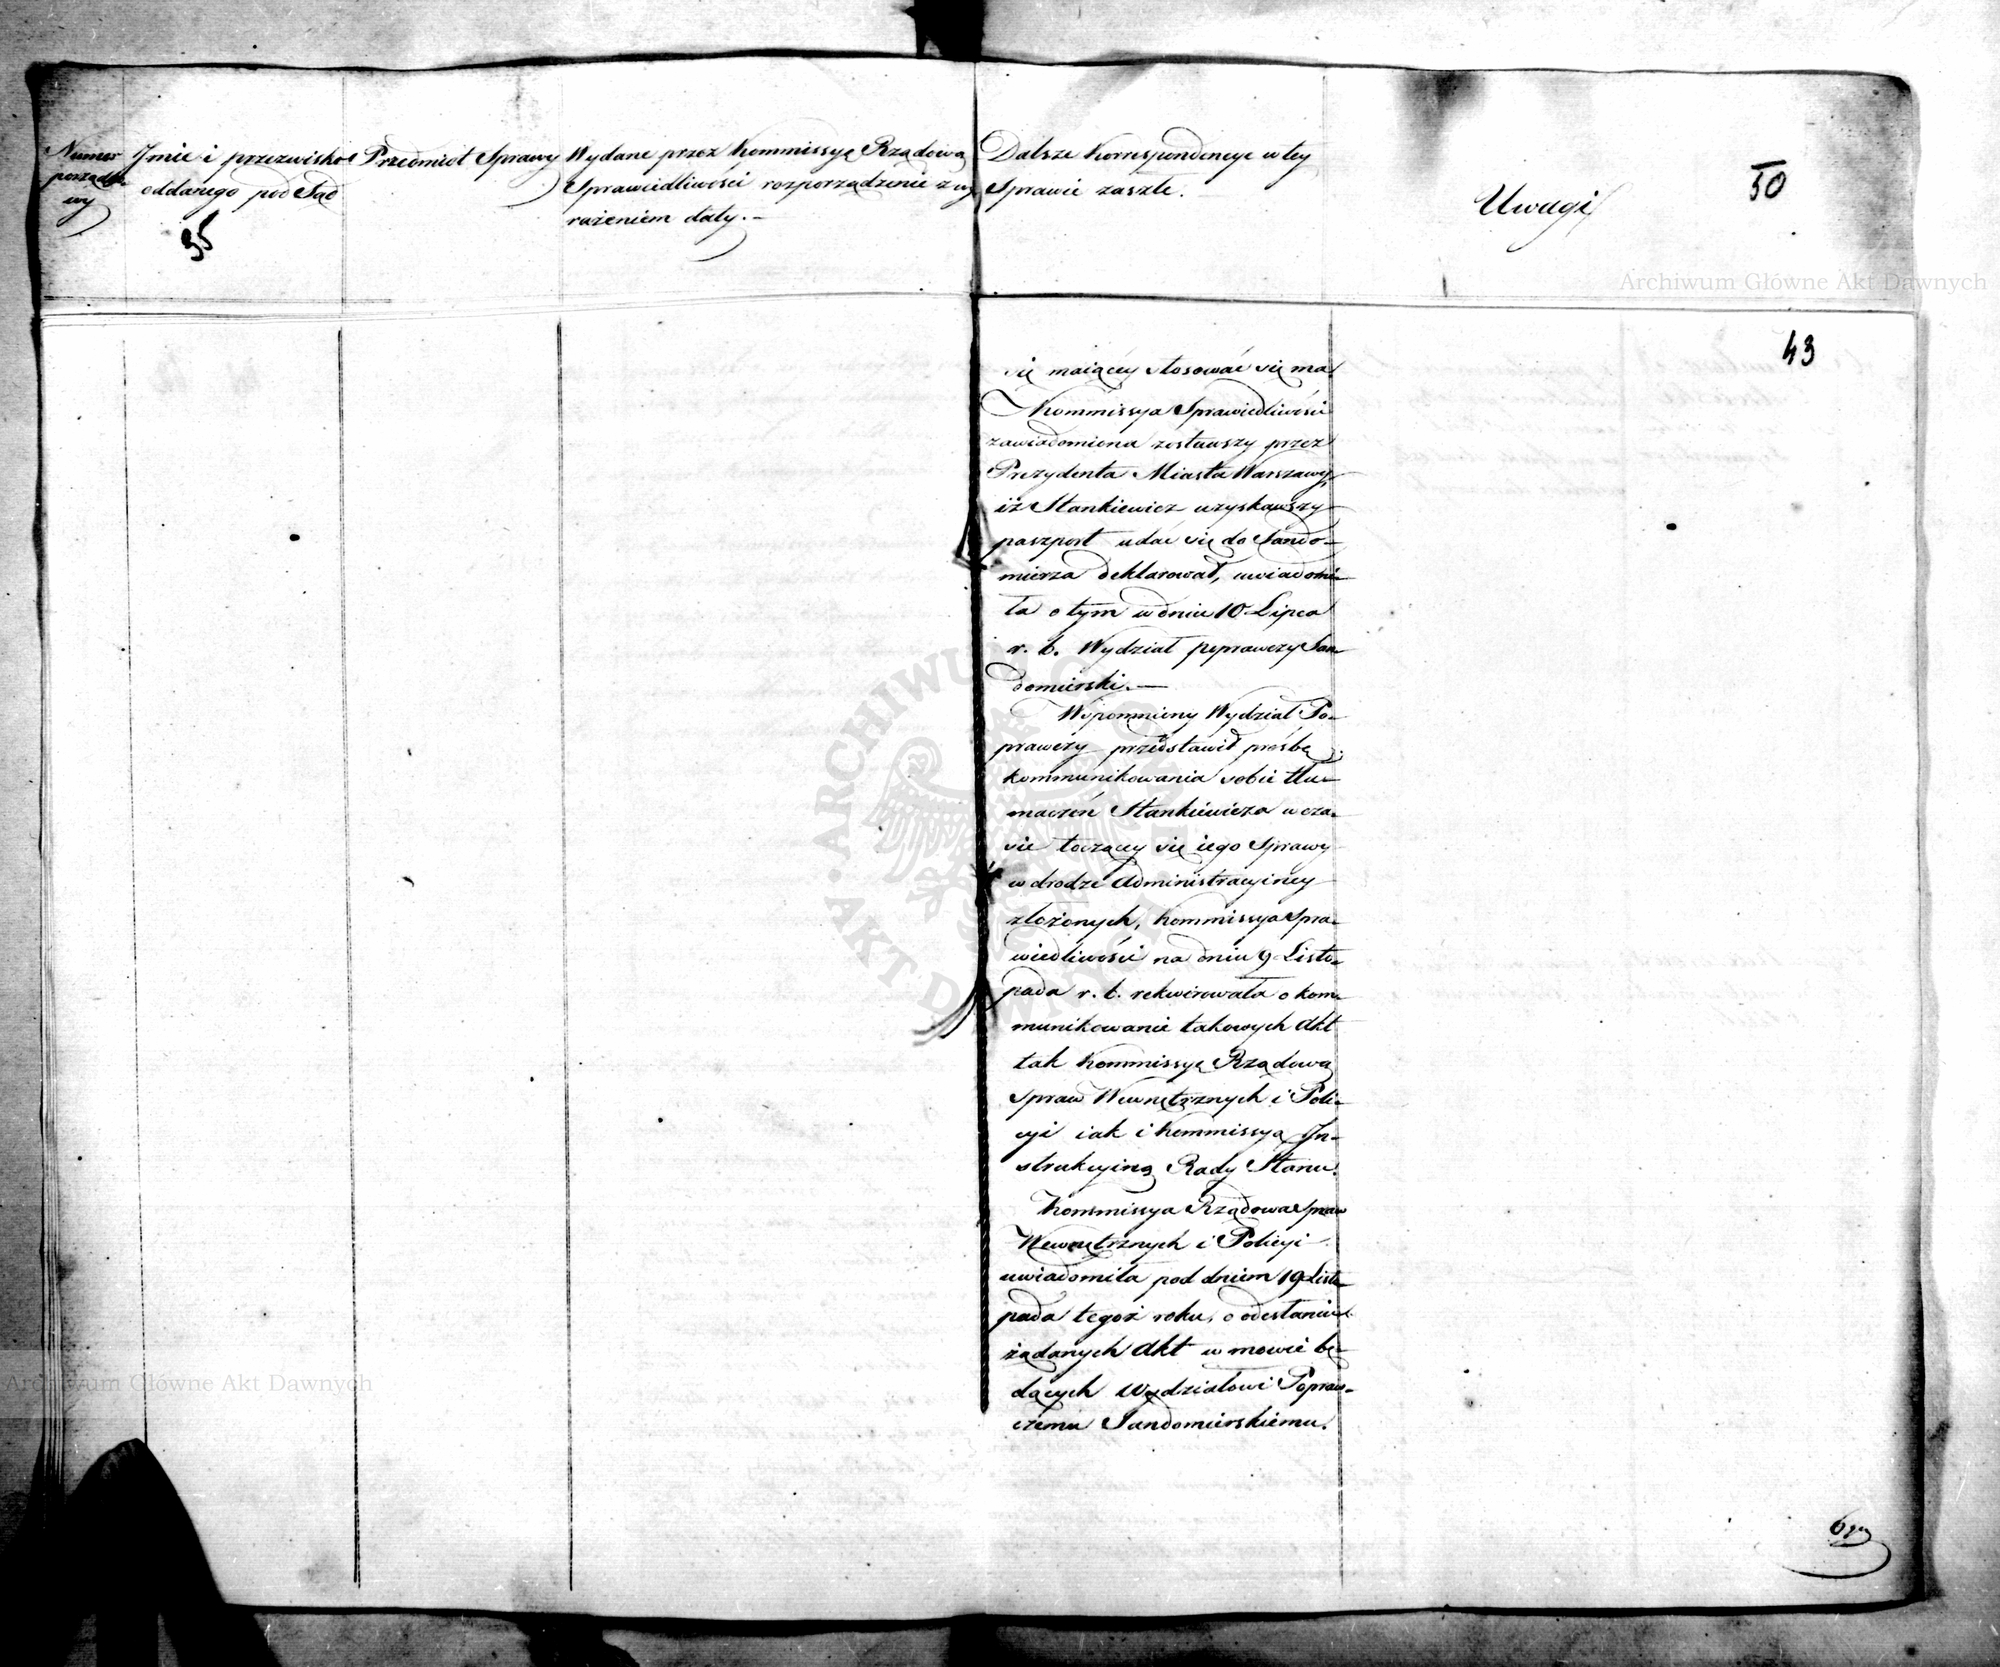 Numer
porządko
wy
Jmie i przezwisko
oddanego pod Sąd
35
Przedmiot Sprawy
Wydane przez Kommissyą Rządową
Sprawiedliwości rozporządzenie z wy
rażeniem daty. –
Dalsze Korrespondencye w tey
Sprawie zaszłe.
Uwagi
50
Archiwum Główne Akt Dawnych
43
się maiącey stosować się ma.
Kommissya Sprawiedliwości
zawiadomiona zostawszy przez
Prezydenta Miasta Warszawy,
iż Stankiewicz uzyskawszy
paszport udać się do Sando-
mierza deklarował, uwiadomi-
ła o tym w dniu 10 Lipca
r. b. Wydział poprawczy San-
domirski. —
Wspomniony Wydział Po-
prawczy przedstawił prośbę
kommunikowania sobie tłu-
maczeń Stankiewicza w cza-
sie toczącey się iego Sprawy
w drodze Administracyiney
złożonych, Kommissya Spra-
wiedliwości na dniu 9 Listo-
pada r. b. rekwirowała o kom-
munikowanie takowych Akt
tak Kommissyą Rządową
Spraw Wewnętrznych i Poli-
cyi iak i Kommissyą In-
strukcyiną Rady Stanu.
Kommissya Rządowa Spraw
Wewnętrznych i Policyi
uwiadomiła pod dniem 19 Listo-
pada tegoż roku, o odesłaniu
żądanych Akt w mowie bę-
dących Wydziałowi Popraw-
czemu Sandomirskiemu.
Archiwum Główne Akt Dawnych